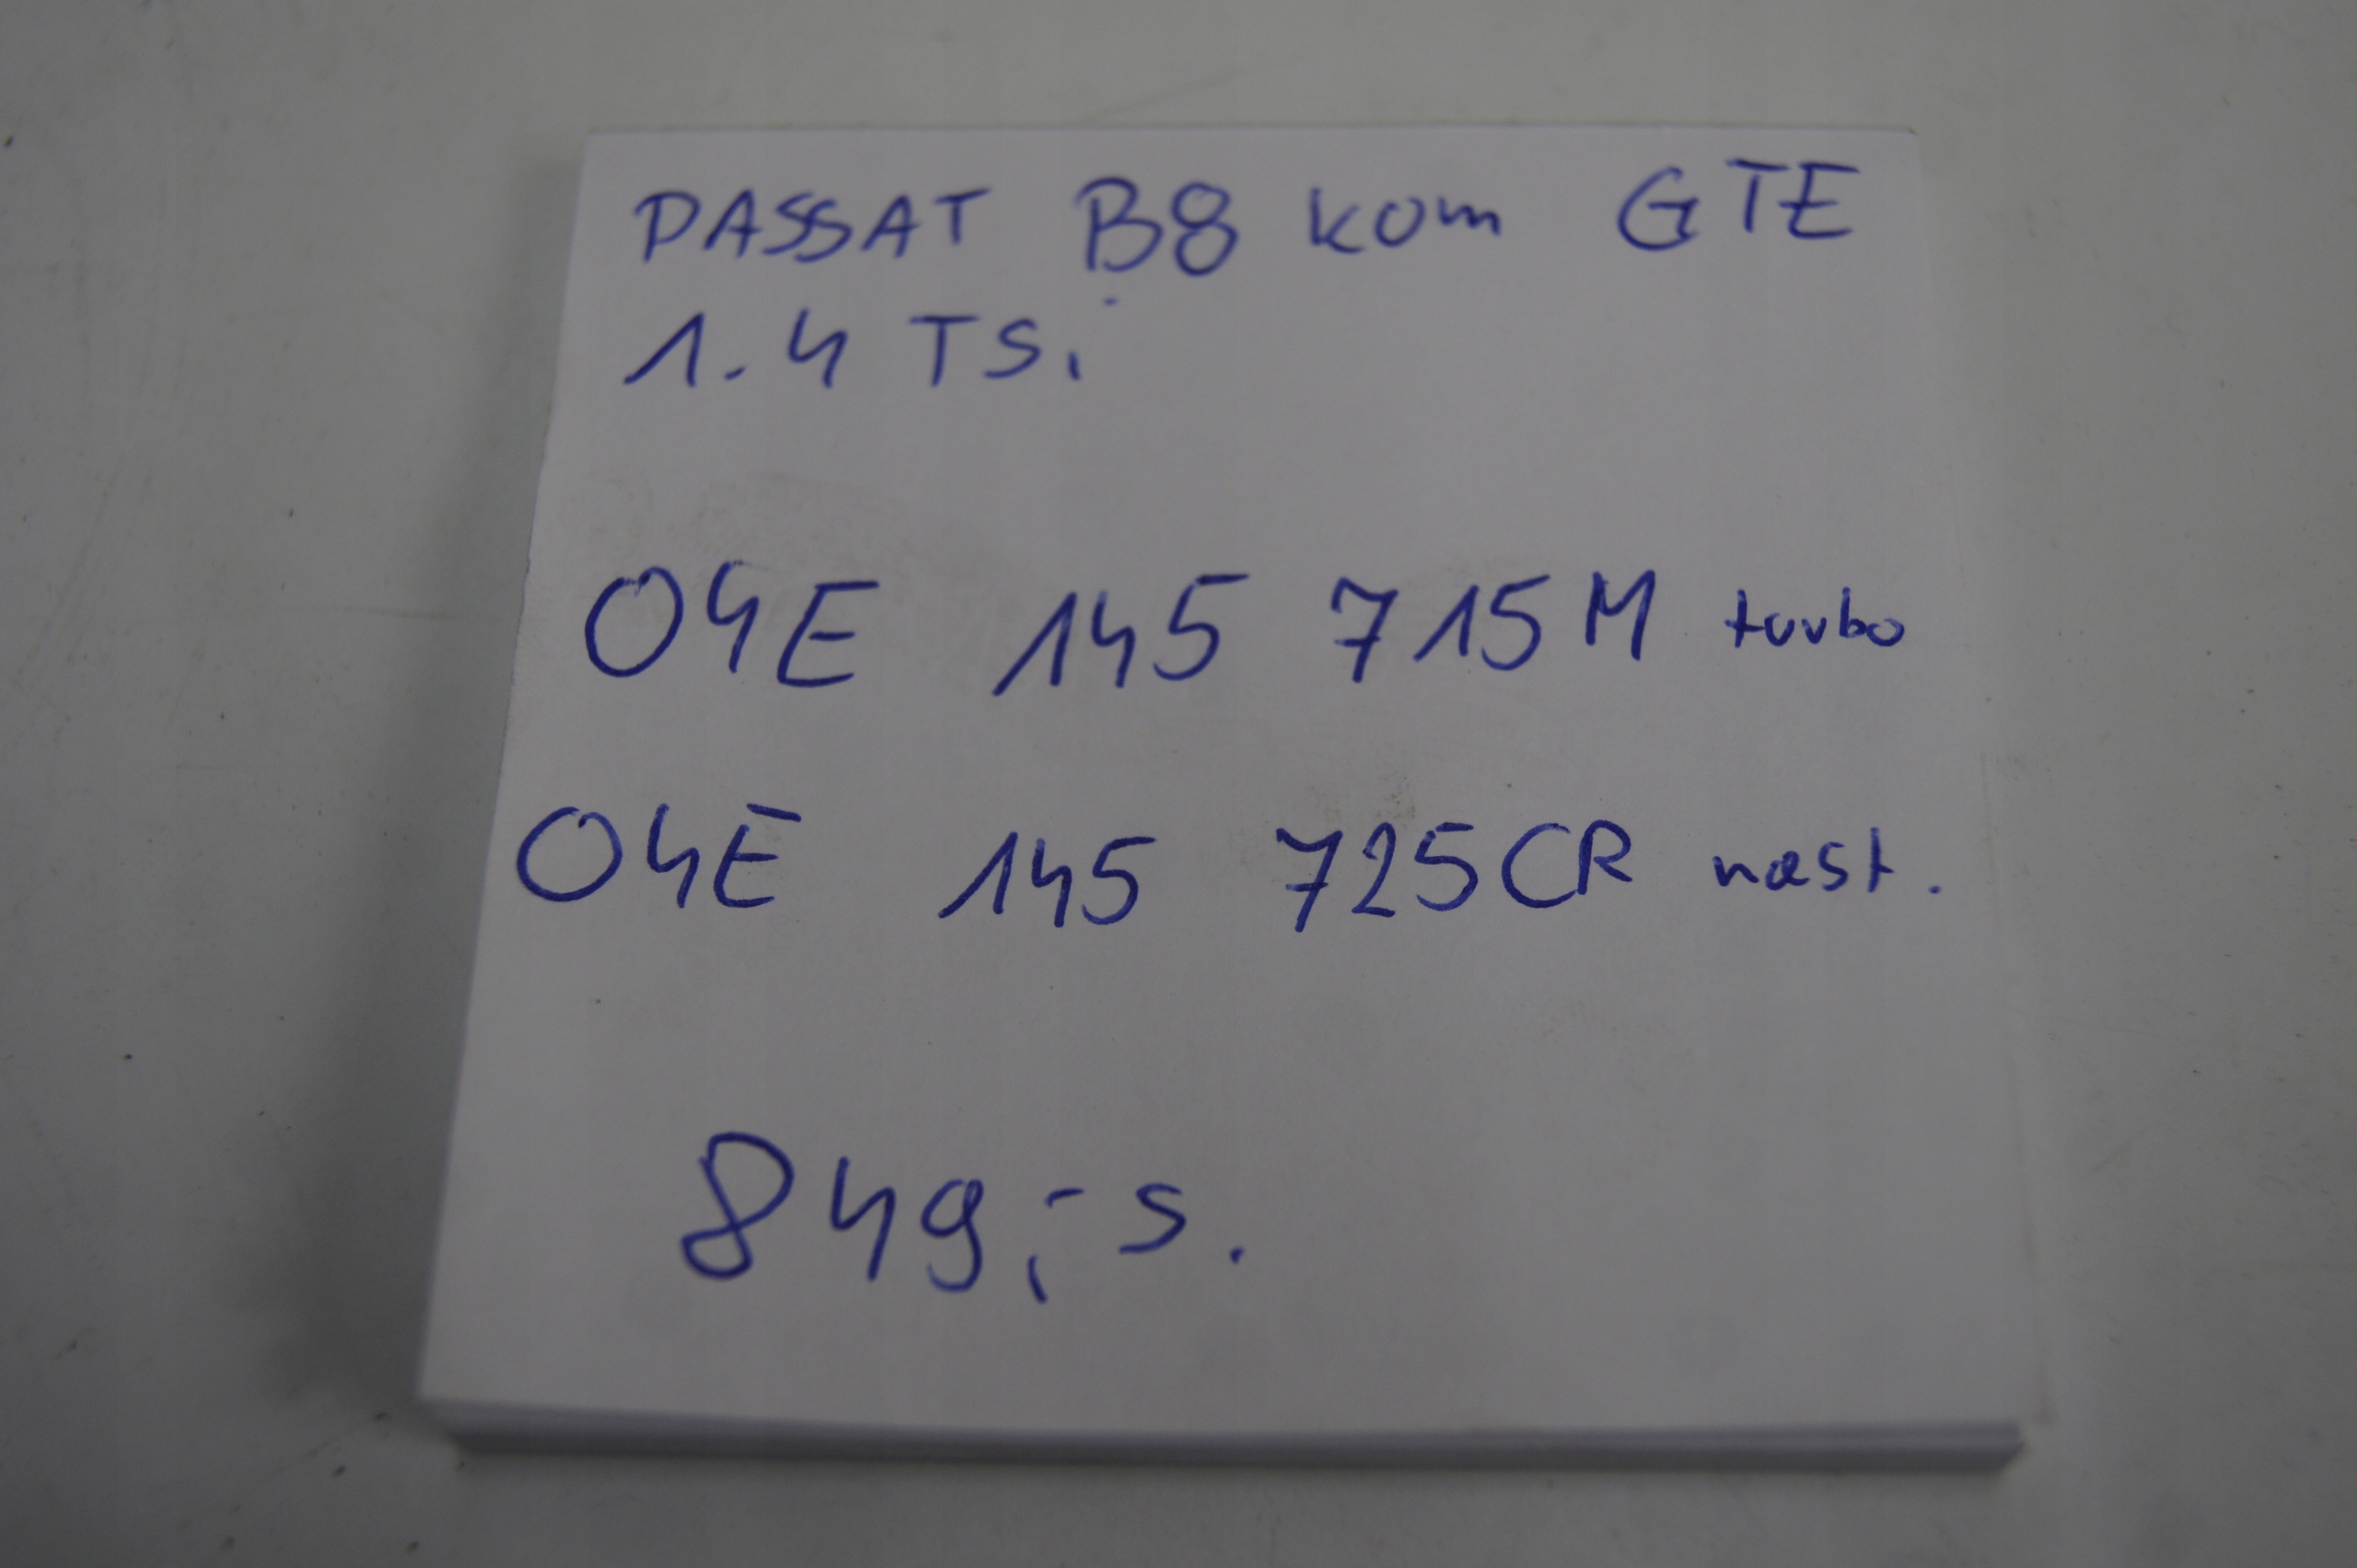 PASSAT B8 kom GTE
1.4 TSi
04E 145 715M turbo
04E 145 725CR nast.
849,- s.